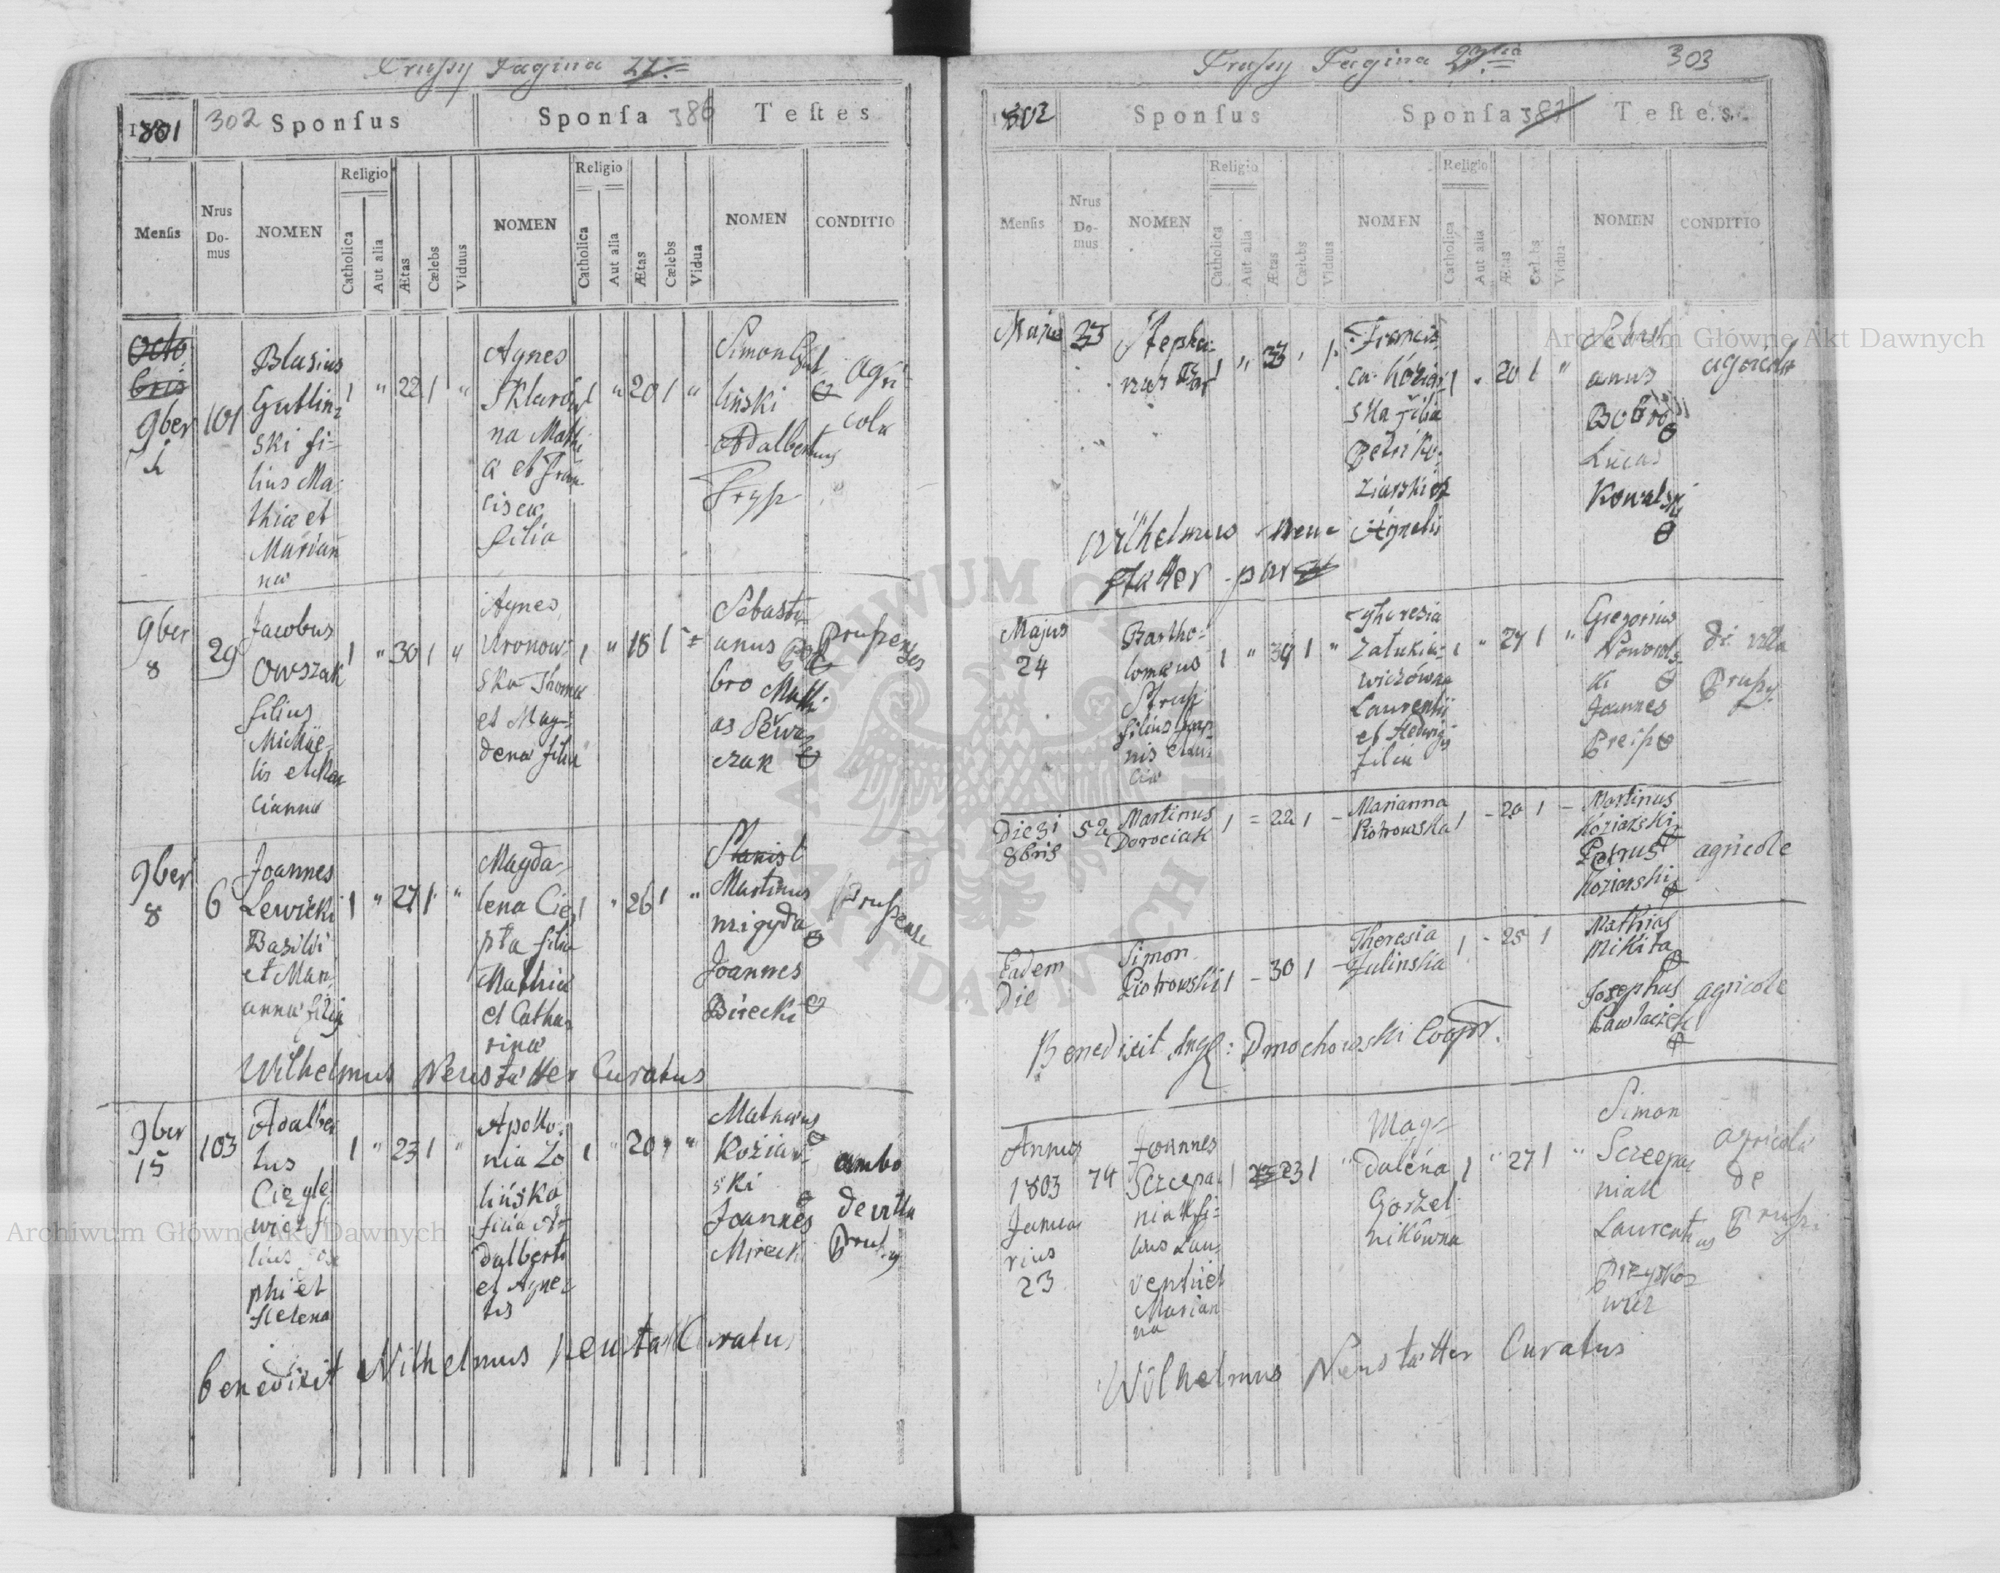 Prussy Pagina
1801
302 Sponsus
Sponsa 386
Testes
Mensis
Nrus Domus
NOMEN
Religio
Catholica
Aut alia
Ætas
Cælebs
Viduus
NOMEN
Religio
Catholica
Aut alia
Ætas
Cælebs
Vidua
NOMEN
CONDITIO
Octo
bris
9ber
101
Blasius
ski fi-
lius Ma-
thiæ et
Marian
na
1 " 22 1 "
Agnes
na Mathi
a et Fran
cisca
filia
1 " 20 1 "
Simon
liński
Adalbertus
agri-
cola
9ber
8
29
Jacobus
Owszak
filius
Michae
lis et
cianna
1 " 30 1 "
Agnes
Uronow-
ska Thoma
et Mag-
dena filia
1 " 18 1
Sebasti
anus Bo
bro Mathi
as
czak
Prussenses
9ber
8
6
Joannes
Lewicki
Basilii
et Mari
anna filiq
1 " 27 1 "
Magda-
lena Cie
pła filia
Mathiæ
et Catha
rina
1 " 26 1 "
Stanisl
Martinus
migyda
Joannes
Birecki
Prussense
Wilhelmus Neustatter Curatus
9ber
15
103
Adalber
tus
Ciegle
wicz fi
lius Jose
phi et
Helena
1 " 23 1 "
Apollo-
nia Zo
lińska
filia A-
dalberti
et Agne-
tis
1 " 20 " "
Mathæus
Koziar-
ski
Joannes
Mireck
ambo
de villa
Prussy
benedixit Wilhelmus Neustatt Curatus
Prussy Pagina
303
1802
Sponsus
Sponsa 387
Testes
Mensis
Nrus Domus
NOMEN
Religio
Catholica
Aut alia
Ætas
Cælebs
Viduus
NOMEN
Religio
Catholica
Aut alia
Ætas
Cælebs
Vidua
NOMEN
CONDITIO
Majus
33
Stepha-
nus
1 " 33 ' 1
Francis-
ca Koziar
ska filia
Petri Ko-
ziarski et
Agnetis
1 " 20 1 "
Sebasti
anus
Bobro
Lucas
Kowalski
agricola
Wilhelmus Neu-
statter par
Majus
24
Bartho-
lomæus
filius Joan
nis et Lu
cia
1 " 34 1 "
Theresia
Załukie-
wiczówna
Laurentii
et Hedwigis
filia
1 " 27 1 "
Gregorius
Noworols-
ki
Joannes
Preiss
de villa
Prussy.
Die 31
8bris
52
Martinus
Dorociak
1 = 22 1 -
Marianna
Piotrowska
1 - 20 1 -
Martinus
Koziarski
Petrus
Koziarski
agricole
Eadem
Die
Simon
Piotrowski
1 - 30 1 -
Theresia
Julinska
1 - 25 1
Mathias
Mikita
Josephus
Pawlaczek
agricole
Benedixit Aug: Dmochowski Coopr.
Annus
1803
Janua
rius
23
74
Joannes
Sczepa
niak fi-
lius Lau
rentii et
Marian
na
1 23 1 "
Mag-
dalena
Gorzel
nikówna
1 " 27 1 "
Simon
Sczepa
niak
Laurentius
Przybor
wicz
agricola
de
Prussi
Wilhelmus Neustatter Curatus
Archiwum Główne Akt Dawnych
Archiwum Główne Akt Dawnych